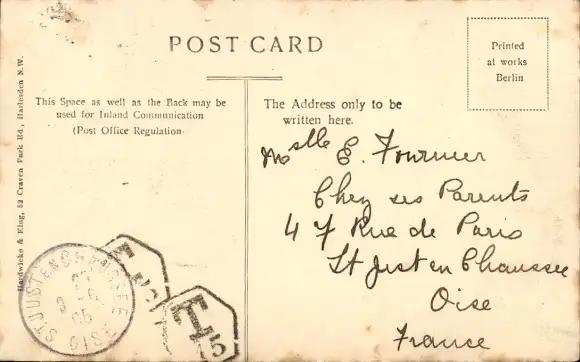 POST CARD
Printed
at works
Berlin
This Space as well as the Back may be
used for Inland Communication
(Post Office Regulation
The Address only to be
written here.
Mselle E. Fournier
Chez ses Parents
47 Rue de Paris
St Just en Chaussee
Oise
France
Hardwicke & King, 52 Craven Park Rd., Harlesden N.W.
ST JUST EN CHAUSSEE
OISE
T
T
15